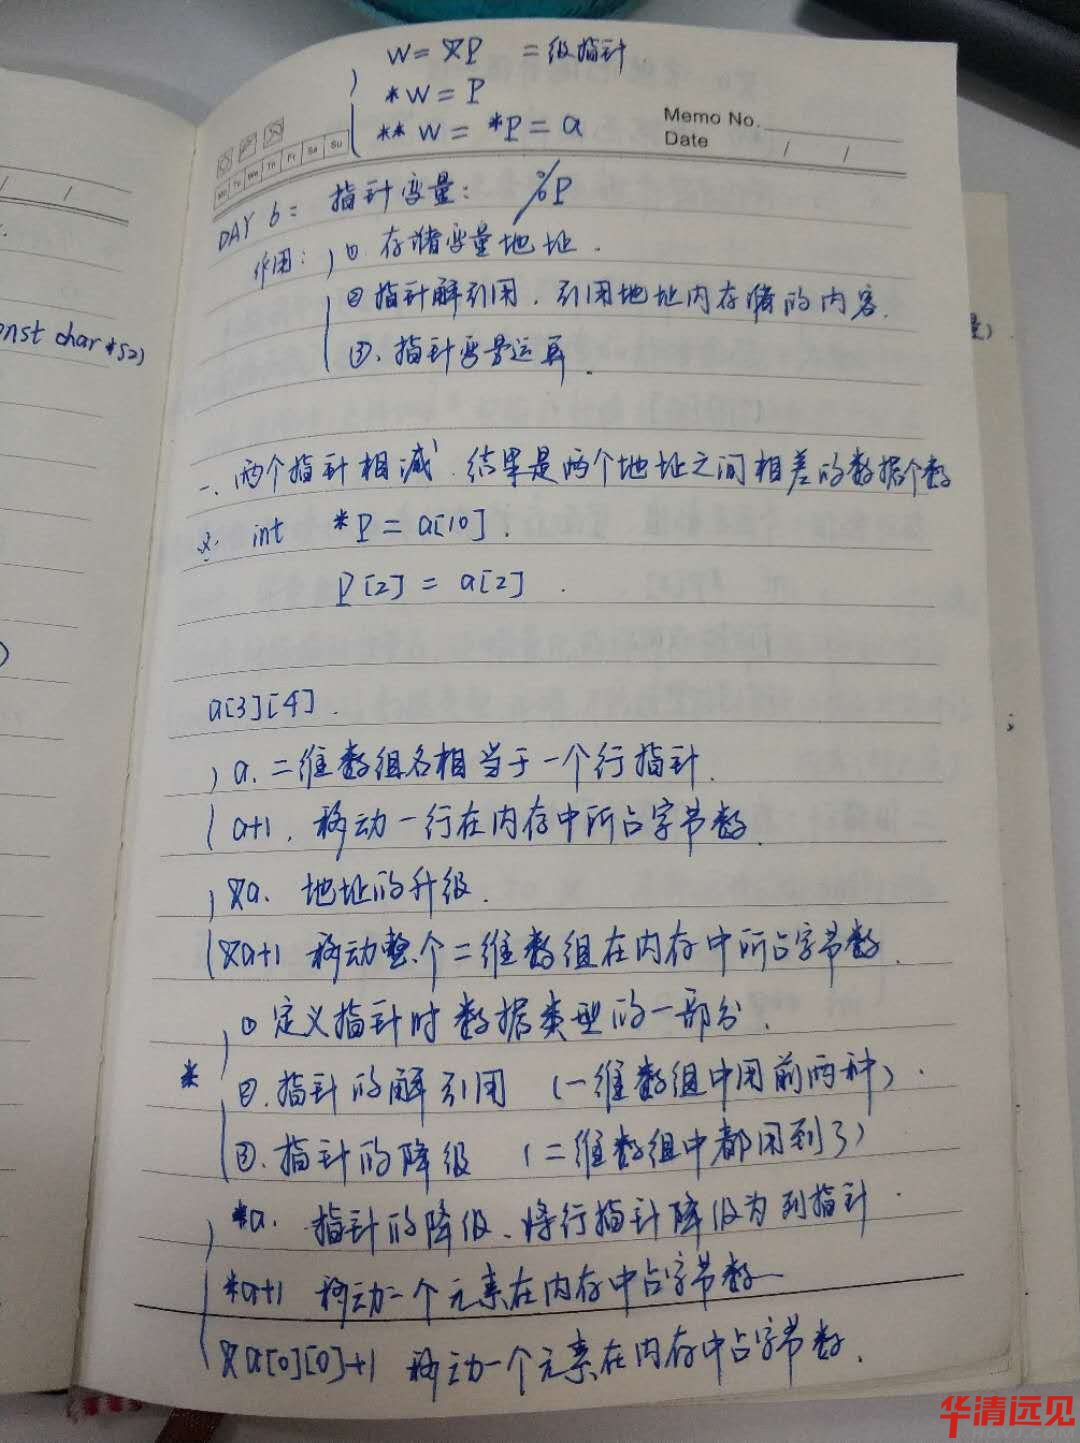 w = &P 二级指针
*w = P
** w = *P = a
Memo No.
Date / /
Mo Tu We Th Fr Sa Su
DAY 6: 指针变量: %P
作用: ① 存储变量地址.
② 指针解引用. 引用地址内存储的内容.
③. 指针变量运算.
onst char *s2)
一. 两个指针相减. 结果是两个地址之间相差的数据个数
int *P = a[10].
P[2] = a[2] .
a[3][4].
a. 二维数组名相当于一个行指针.
a+1. 移动一行在内存中所占字节数.
&a. 地址的升级.
&a+1 移动整个二维数组在内存中所占字节数.
① 定义指针时数据类型的一部分.
* ②. 指针的解引用 (一维数组中用前两种).
③. 指针的降级 (二维数组中都用到了)
*a. 指针的降级、将行指针降级为列指针.
*a+1 移动一个元素在内存中占字节数
&a[0][0]+1 移动一个元素在内存中占字节数.
华清远见
HQYJ.COM